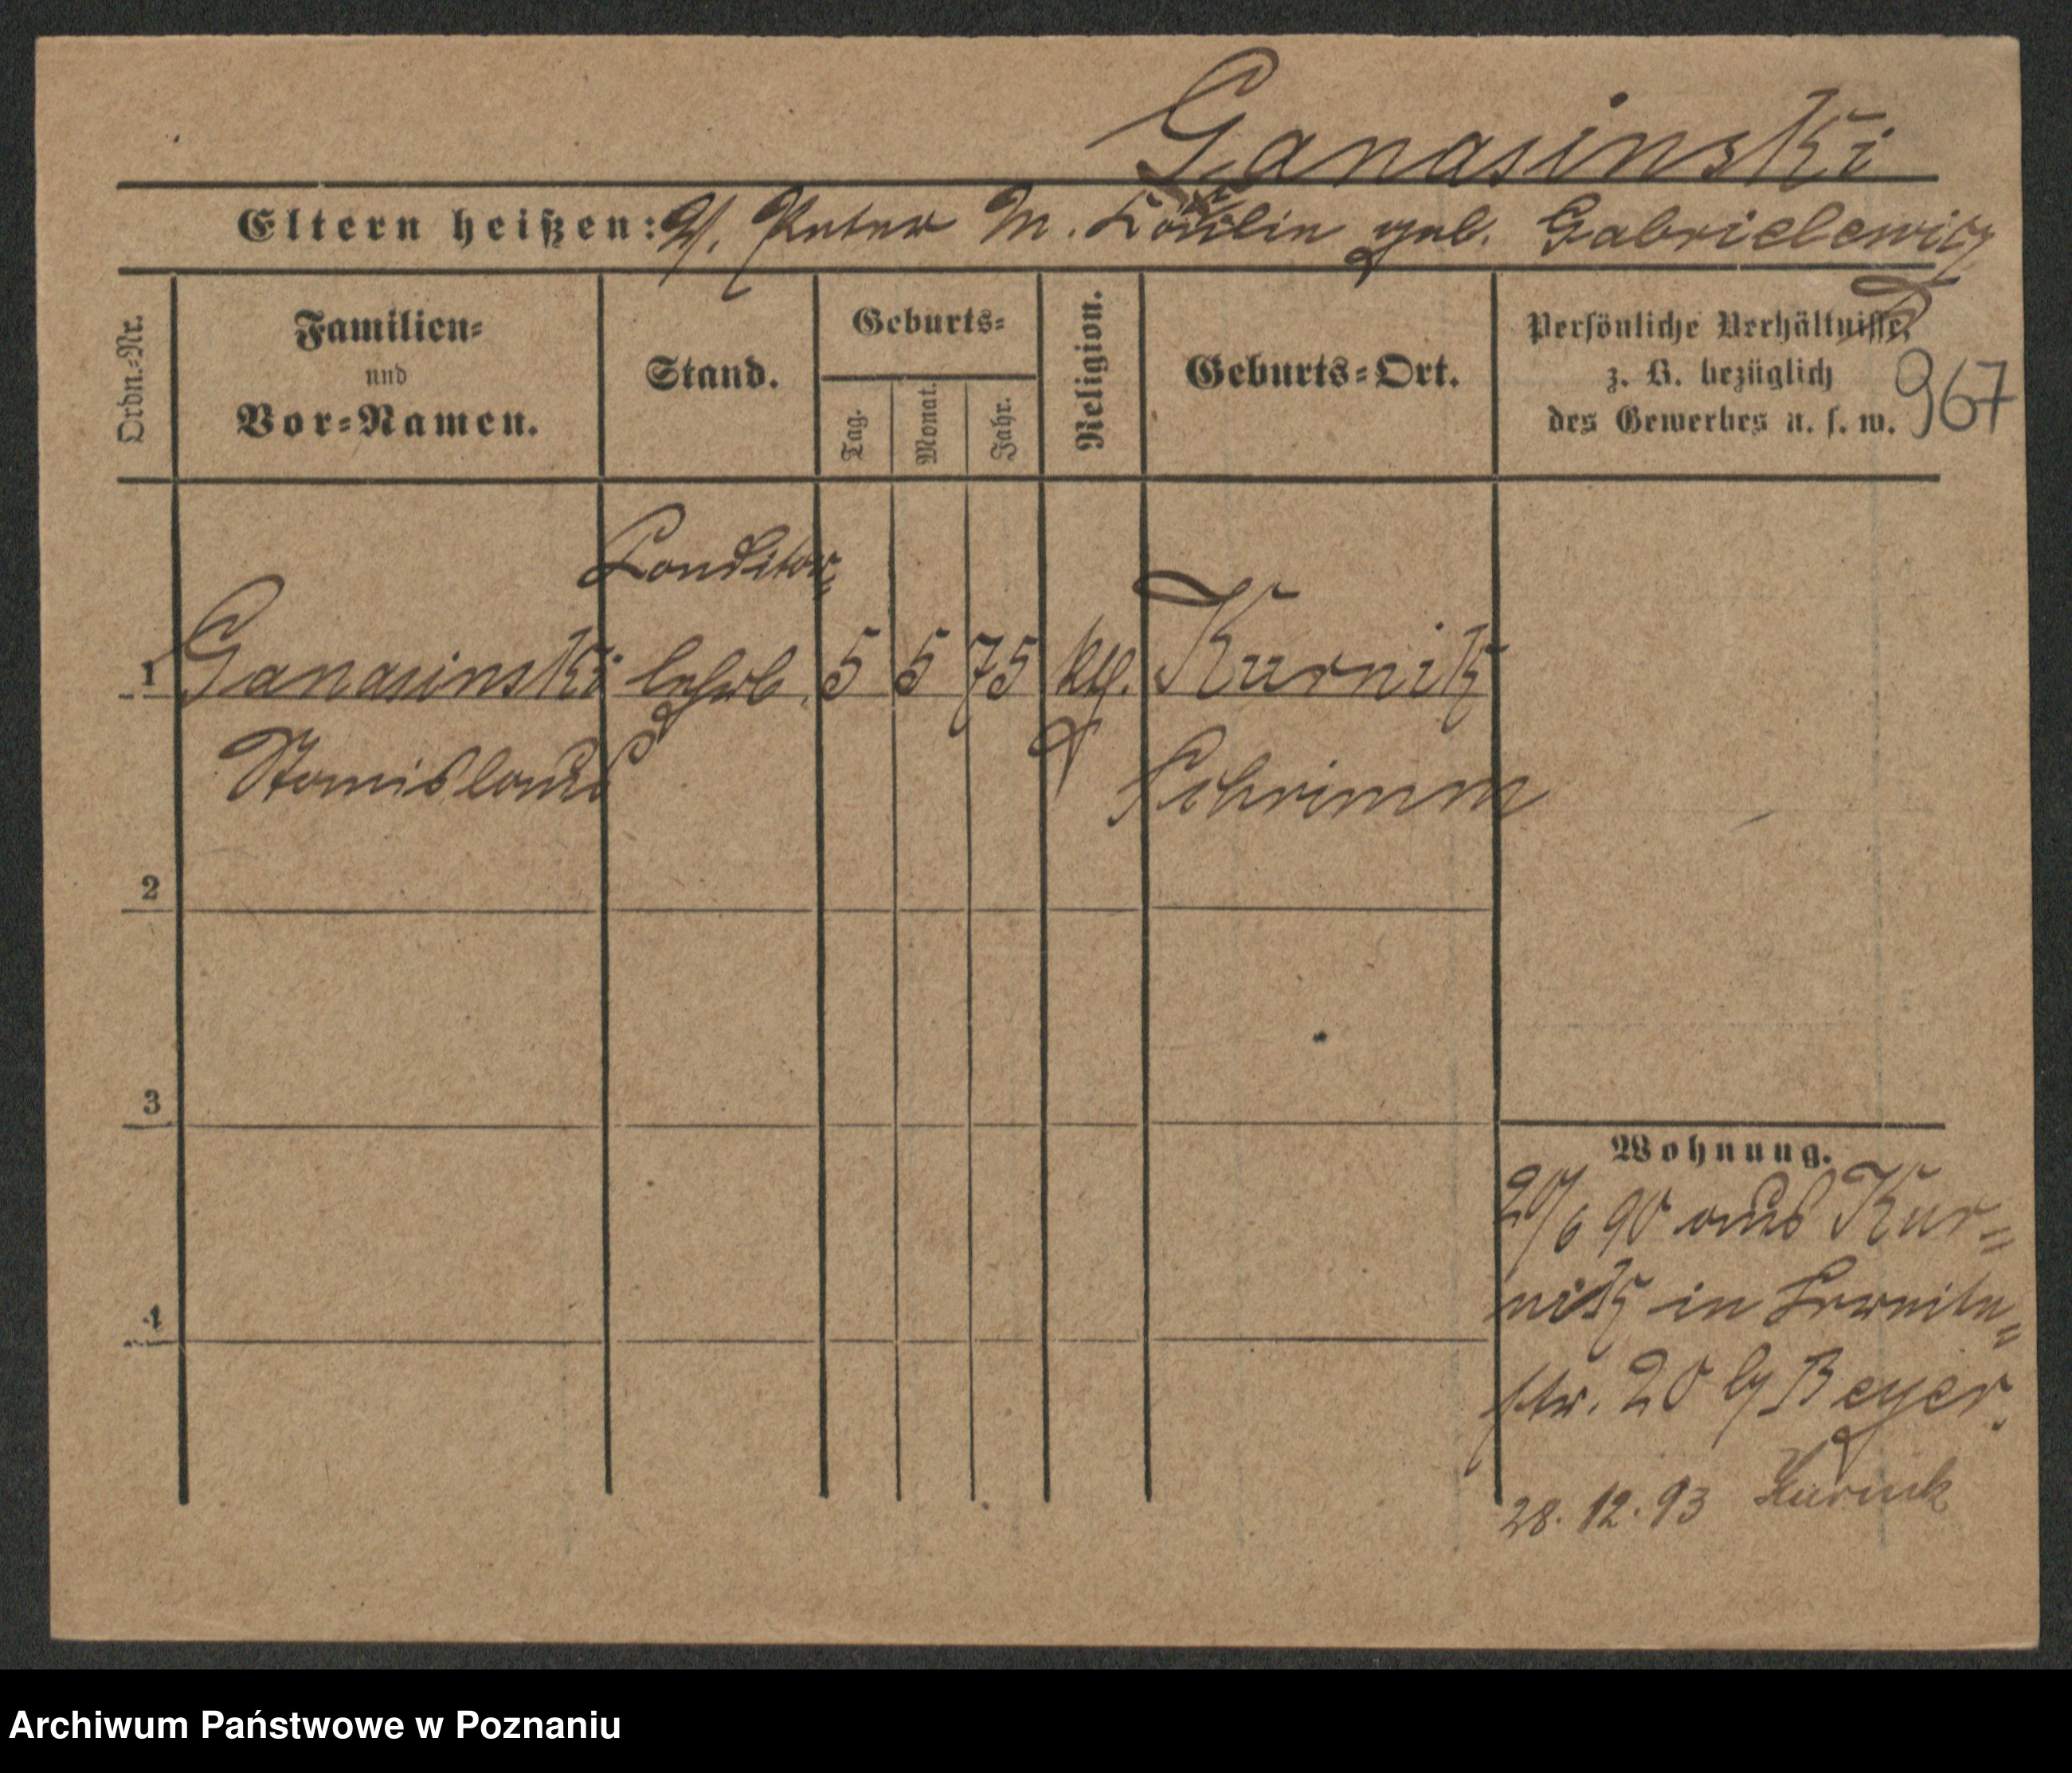 Ganasinski
Eltern heißen: V. Peter M. geb. Gabrielewicz
Ordn.-Nr.
Familien-
und
Vor-Namen.
Stand.
Geburts-
Tag.
Monat.
Jahr.
Religion.
Geburts-Ort.
Persönliche Verhältnisse,
z. B. bezüglich
des Gewerbes u. s. w.
967
Conditor-
1 Ganasinski lehrl. 5 5 75 kth. Kurnik
Stanislaus Schrimm
2
3
4
Wohnung.
20/6 90 aus Kur=
nik in Breite=
str. 20 b/ Beyer.
28.12.93 Kurnik
Archiwum Państwowe w Poznaniu